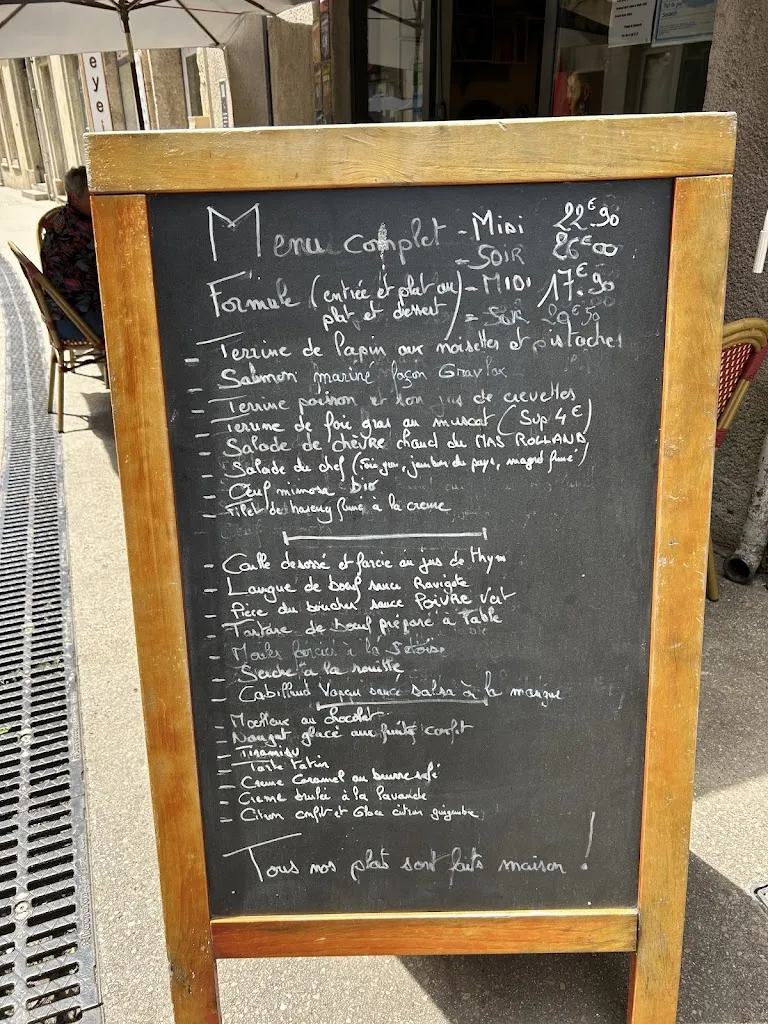 eye
Menu complet - MIDI 22€90
- SOIR 26€00
Formule (entrée et plat ou - MIDI 17€.90
plat et dessert) = SOIR
- Terrine de lapin aux noisettes et pistaches
- Saumon mariné façon Gravlax
- Terrine poisson et son jus de crevettes
- Terrine de foie gras au muscat (Sup 4€)
- Salade de chèvre chaud du MAS ROLLAND
- Salade du chef (foie gras, jambon du pays, magret fumé)
- Œuf mimosa bio
- Filet de hareng fumé à la creme
- Caille desossé et farcie au jus de thym
- Langue de bœuf sauce Ravigote
- Pièce du boucher sauce POIVRE Vert
- Tartare de bœuf préparé à Table
- Moules farcies à la Sètoise
- Seiche à la rouille
- Cabillaud Vapeur sauce salsa à la mangue
- Moelleux au chocolat
- Nougat glacé aux fruits confit
- Tiramisu
- Tarte tatin
- Creme Caramel au beurre salé
- Creme brulée à la lavande
- Citron confit et Glace citron gingembre
Tous nos plat sont faits maison !